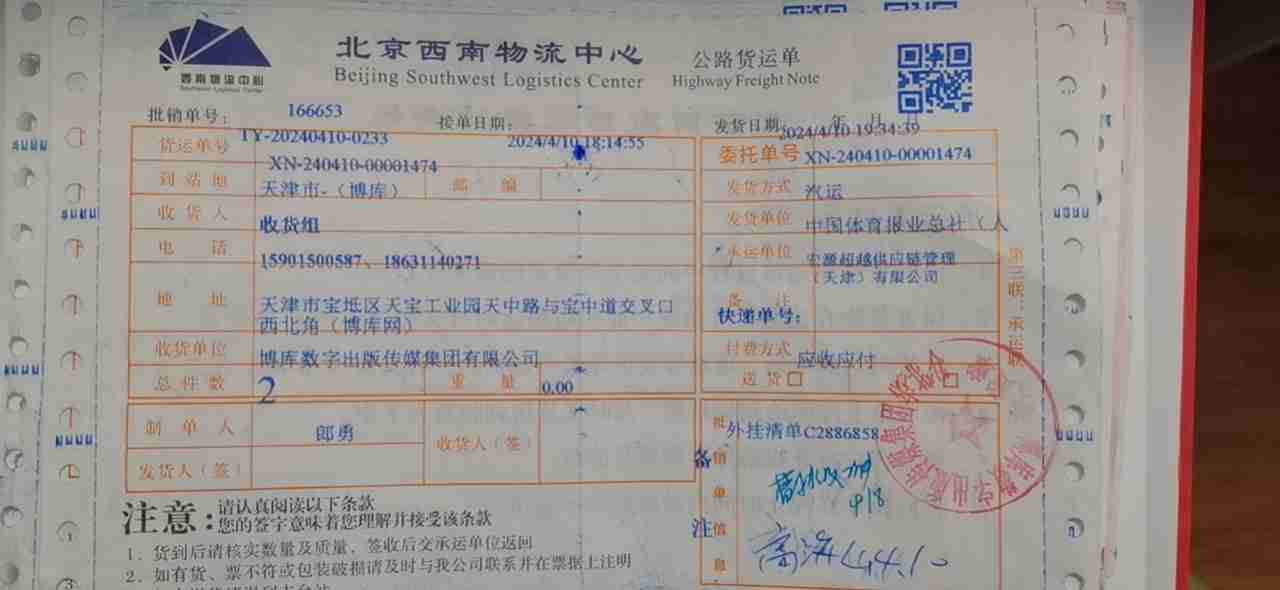 西南物流中心
Southwest Logistics Center
北京西南物流中心
Beijing Southwest Logistics Center
公路货运单
Highway Freight Note
批销单号: 166653
接单日期: 2024/4/10 18:14:55
发货日期: 年 月 日 2024/4/10 19:34:39
货运单号 TY-20240410-0233
XN-240410-00001474
委托单号 XN-240410-00001474
到站地 天津市-（博库） 邮编
发货方式 汽运
收货人 收货组
发货单位 中国体育报业总社（人
电话 15901500587、18631140271
承运单位 宏源超越供应链管理
（天津）有限公司
地址 天津市宝坻区天宝工业园天中路与宝中道交叉口
西北角（博库网）
备注
快递单号:
收货单位 博库数字出版传媒集团有限公司
付费方式 应收应付
总件数 2 重量 0.00
送货□
制单人 郎勇 收货人（签）
发货人（签）
备注
批销单信息
外挂清单C2886858
4.10
第三联:承运联
注意:
请认真阅读以下条款
您的签字意味着您理解并接受该条款
1. 货到后请核实数量及质量，签收后交承运单位返回
2. 如有货、票不符或包装破损请及时与我公司联系并在票据上注明